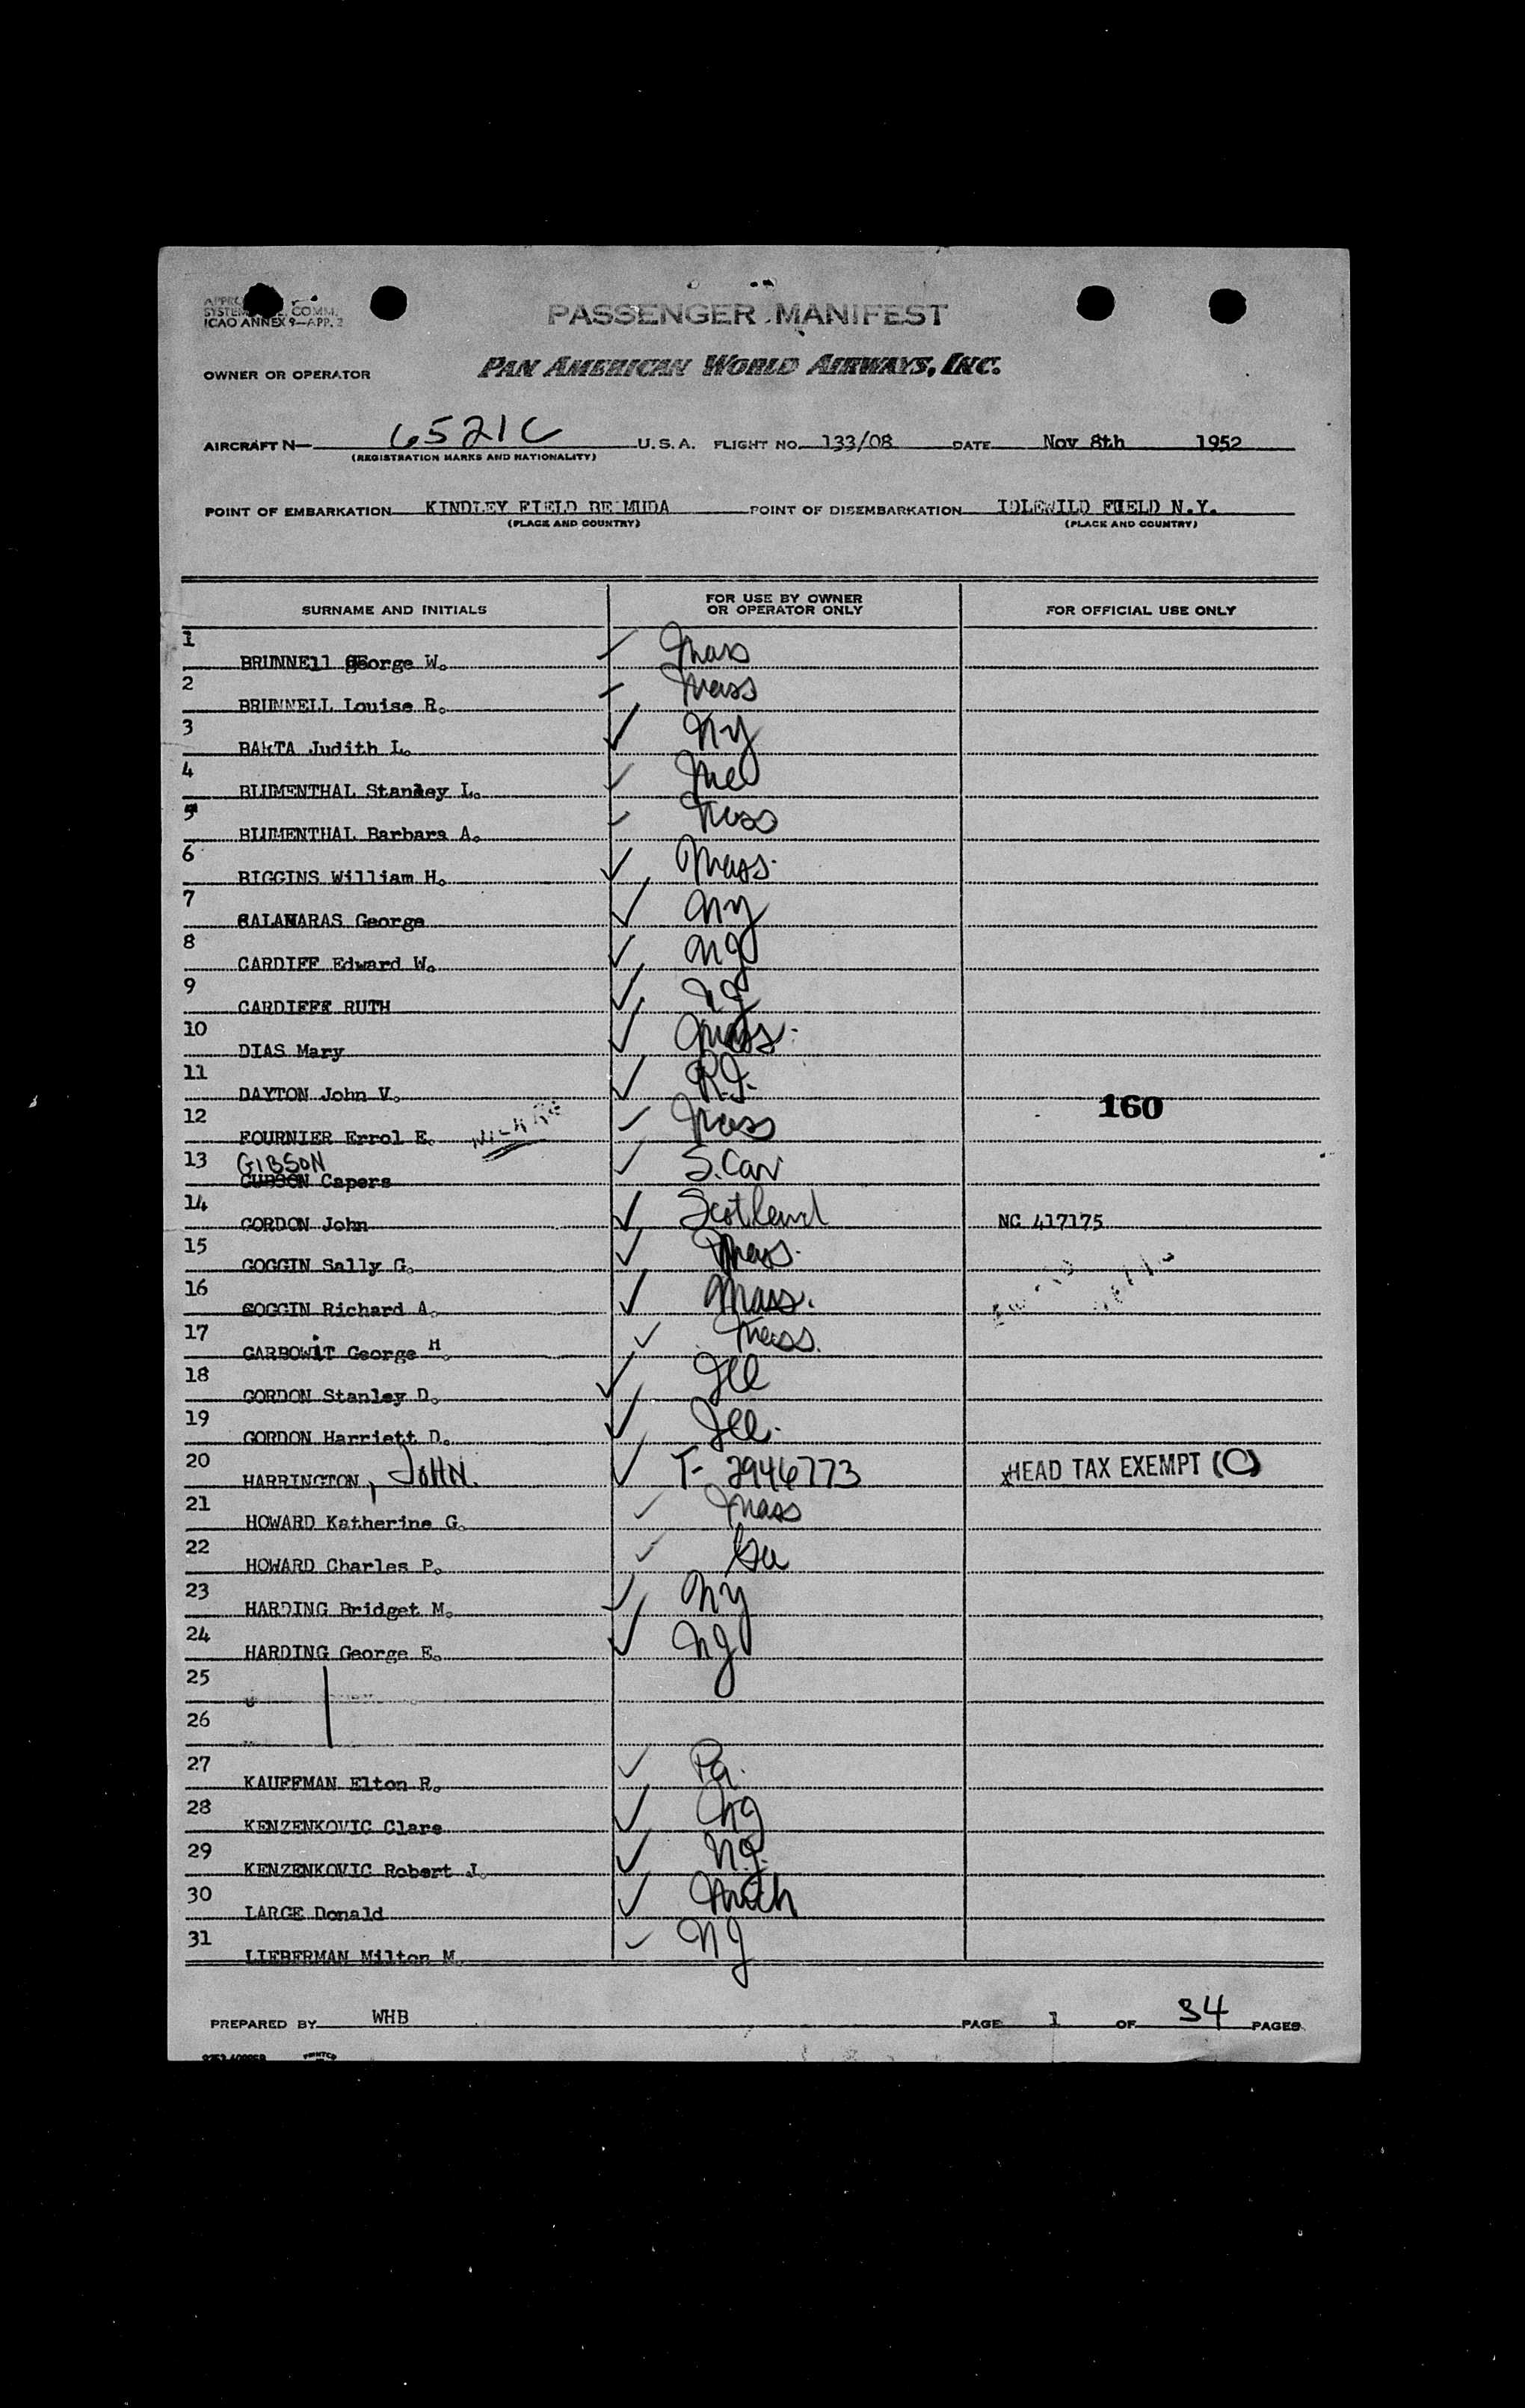 SYSTEM COMM.
ICAO ANNEX 9—APP. 2
PASSENGER MANIFEST
OWNER OR OPERATOR PAN AMERICAN WORLD AIRWAYS, INC.
AIRCRAFT N— 6521C U.S.A. FLIGHT NO. 133/08 DATE Nov 8th 1952
(REGISTRATION MARKS AND NATIONALITY)
POINT OF EMBARKATION KINDLEY FIELD BERMUDA POINT OF DISEMBARKATION IDLEWILD FIELD N.Y.
(PLACE AND COUNTRY) (PLACE AND COUNTRY)
SURNAME AND INITIALS FOR USE BY OWNER OR OPERATOR ONLY FOR OFFICIAL USE ONLY
1 BRUNNEll George W. ✓ Mass
2 BRUNNELL Louise R. ✓ Mass
3 BAKTA Judith L. ✓ NY
4 BLUMENTHAL Stanley L. ✓ Me
5 BLUMENTHAL Barbara A. ✓ Mass
6 BIGGINS William H. ✓ Mass.
7 CALAMARAS George ✓ NY
8 CARDIFF Edward W. ✓ NJ
9 CARDIFF RUTH ✓ NJ
10 DIAS Mary ✓ Mass.
11 DAYTON John V. ✓ R.I.
160
12 FOURNIER Errol E. ✓ Mass
13 GIBSON Capers ✓ S. Car
14 GORDON John ✓ Scotland NC 417175
15 GOGGIN Sally G. ✓ Mass.
16 GOGGIN Richard A. ✓ Mass.
17 GARBOWIT George H. ✓ Mass.
18 GORDON Stanley D. ✓ Ill
19 GORDON Harriett D. ✓ Ill.
20 HARRINGTON, JOHN. ✓ T- 2946773 HEAD TAX EXEMPT (C)
21 HOWARD Katherine G. ✓ Mass
22 HOWARD Charles P. ✓
23 HARDING Bridget M. ✓ NY
24 HARDING George E. ✓ NJ
25
26
27 KAUFFMAN Elton R. ✓ Pa.
28 KENZENKOVIC Clare ✓ NJ
29 KENZENKOVIC Robert J. ✓ N.J.
30 LARGE Donald ✓ Mich
31 LIEBERMAN Milton M. ✓ NJ
PREPARED BY WHB PAGE 1 OF 34 PAGES